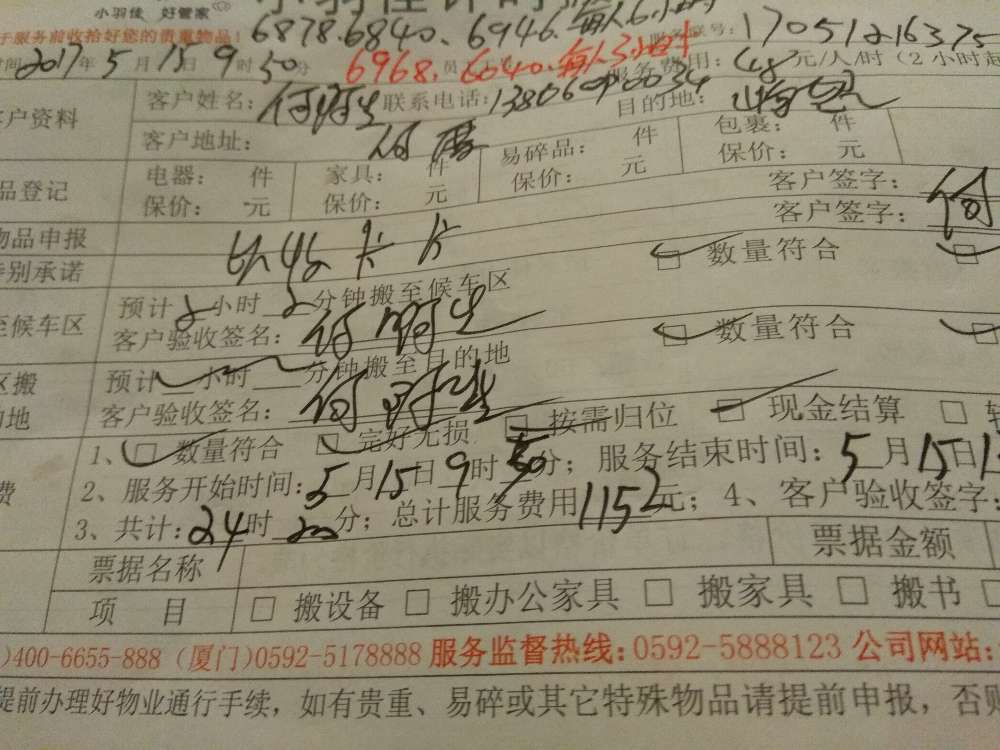 小羽佳 好管家
于服务前收拾好您的贵重物品! 6878.6840、6946.每人6小时 号: 17051216375
时间2017年5月15日9时50分 6968. 6040.每人3小时 服务费用: 48元/人/时 (2小时起
客户资料 客户姓名: 何 联系电话: 目的地:
客户地址:
品登记 电器: 件 家具: 件 易碎品: 件 包裹: 件
保价: 元 保价: 元 保价: 元 保价: 元
客户签字: 何
物品申报 客户签字:
特别承诺 数量符合
至候车区 预计 小时 分钟搬至候车区
客户验收签名: 何 数量符合
区搬 预计 小时 分钟搬至目的地
的地 客户验收签名: 何
1、 数量符合 完好无损 按需归位 现金结算
费 2、服务开始时间: 5月15日9时50分; 服务结束时间: 5月15日1
3、共计: 24时 分; 总计服务费用1152元; 4、客户验收签字:
票据名称 票据金额
项 目 搬设备 搬办公家具 搬家具 搬书
)400-6655-888 (厦门)0592-5178888 服务监督热线: 0592-5888123 公司网站:
提前办理好物业通行手续,如有贵重、易碎或其它特殊物品请提前申报,否则